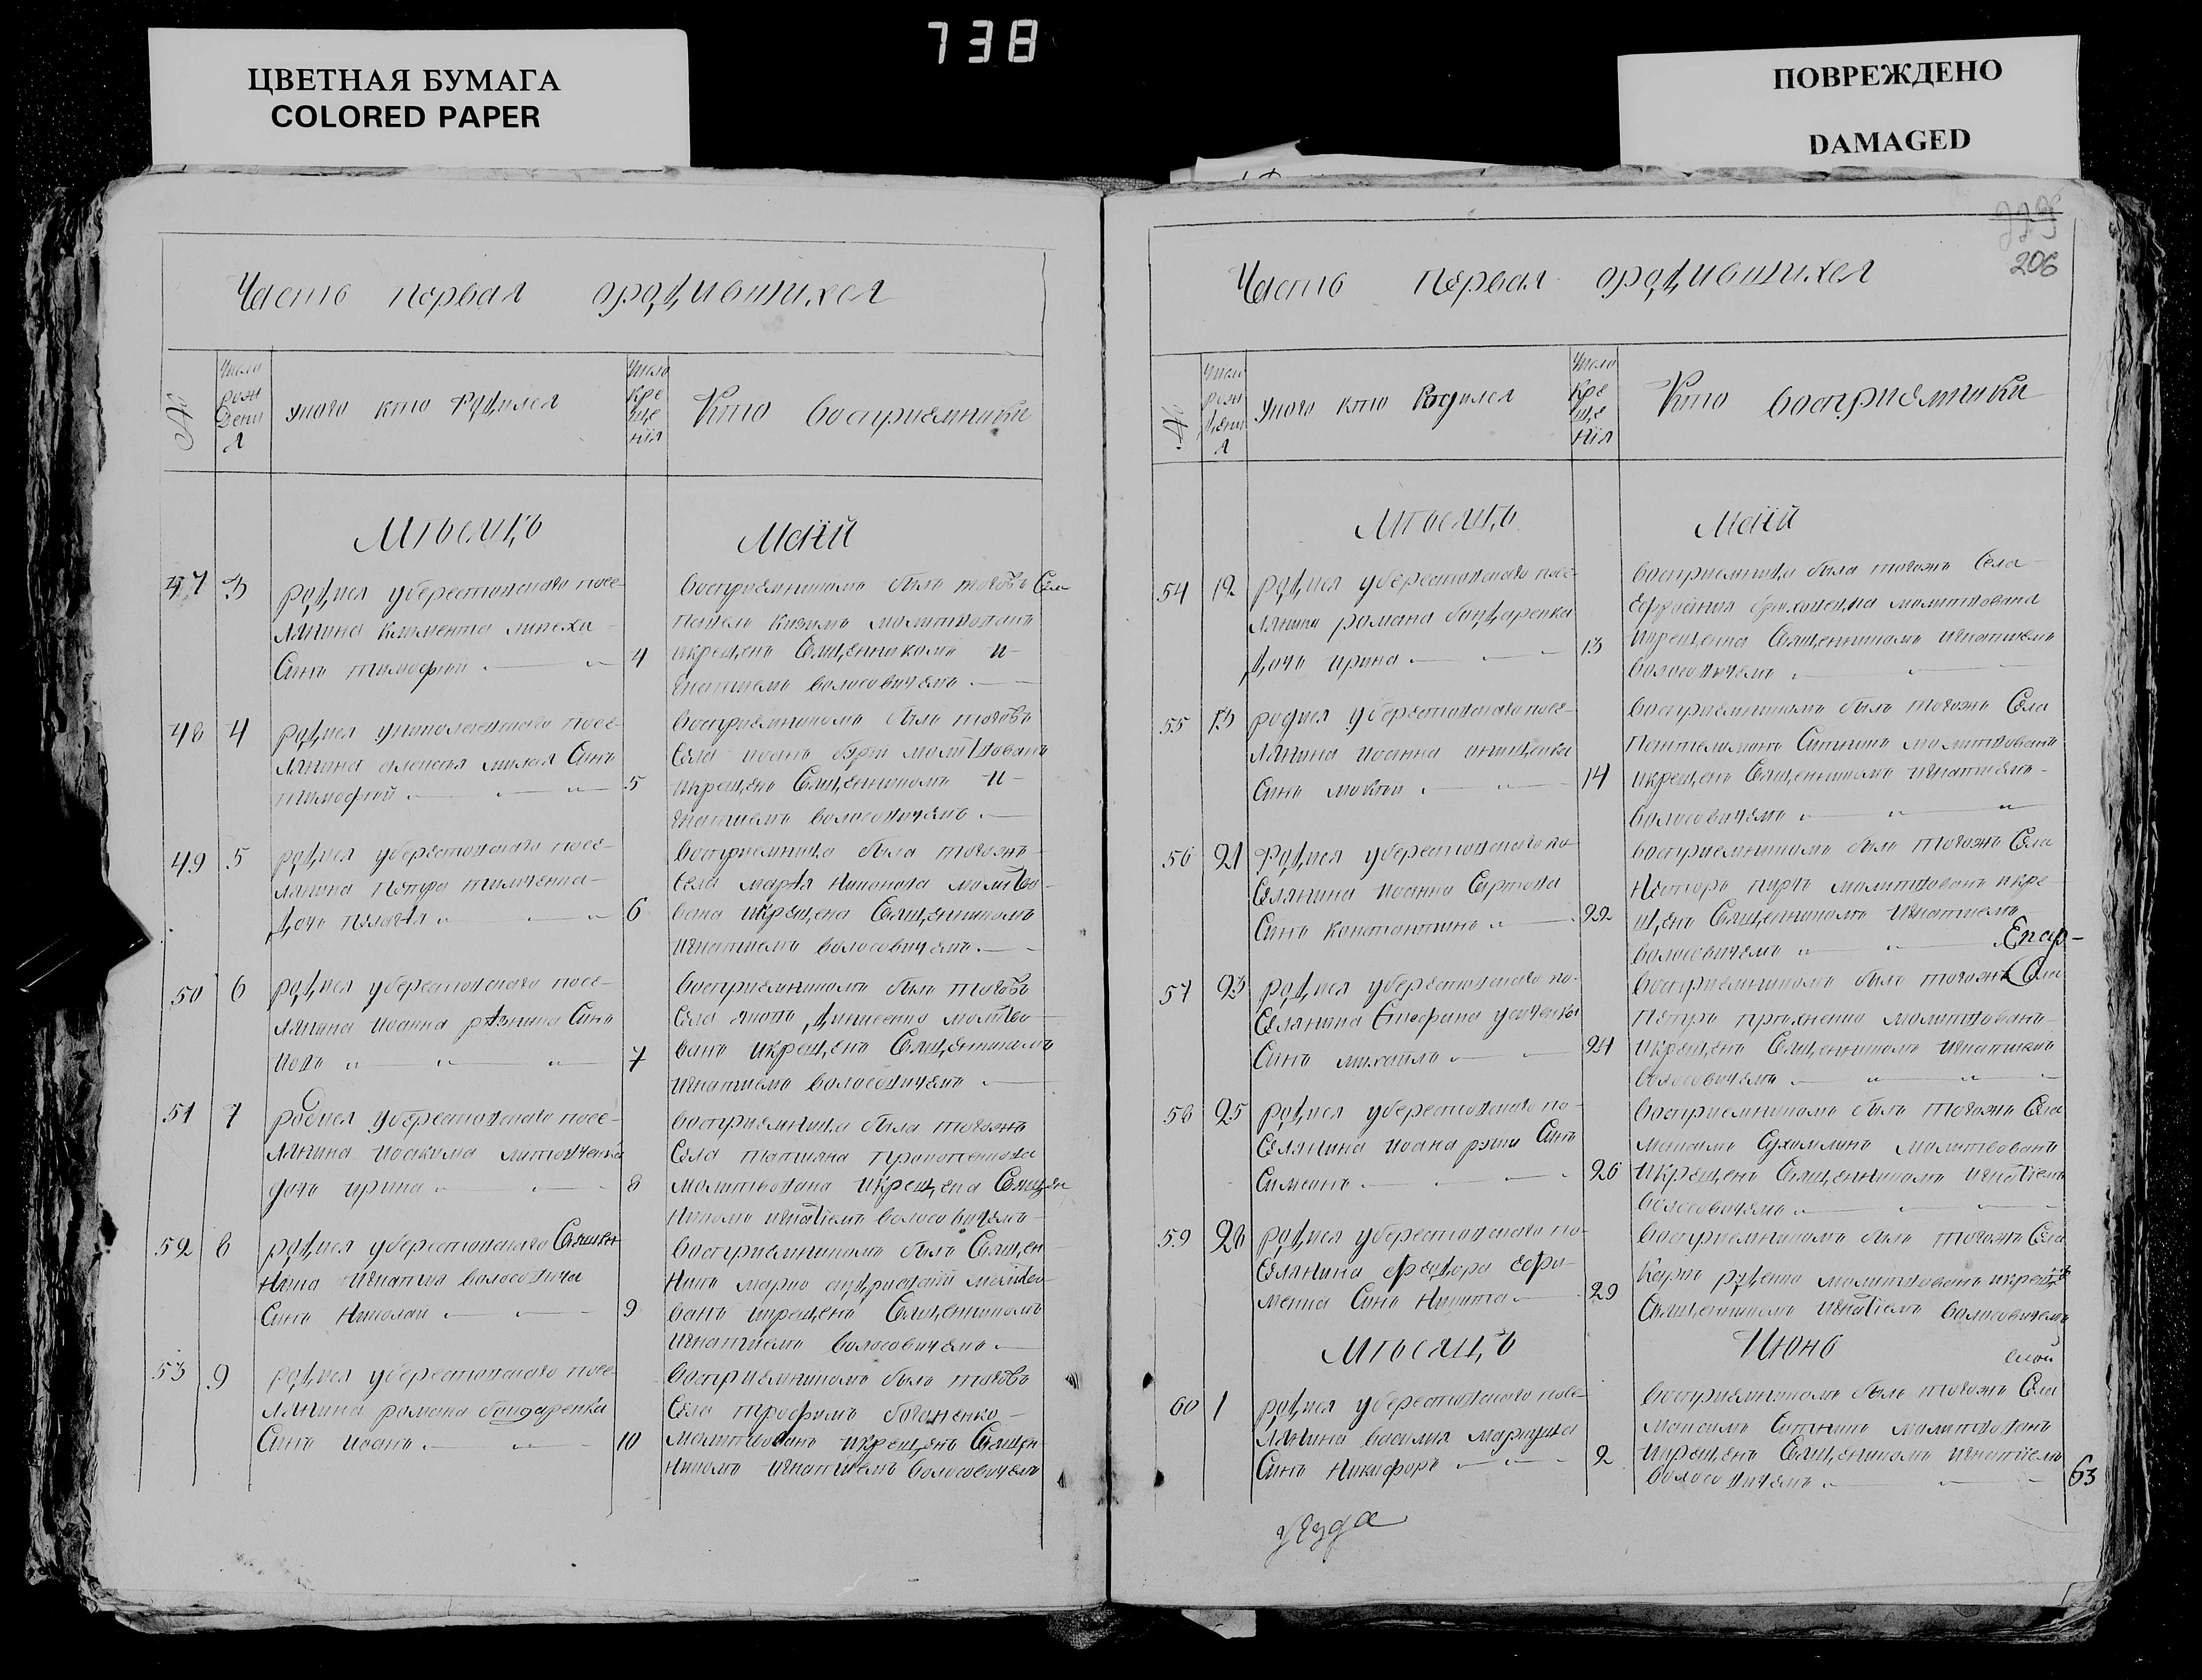 738
ЦВЕТНАЯ БУМАГА
COLORED PAPER
ПОВРЕЖДЕНО
DAMAGED
Часть первая ородившихся
№
Число рожденія
Уного кто родился
Число крещенія
Кто восприемники
Мѣсяцъ Маій
47 3
родился уберестовскаго посе-
лянина климента
Синъ тимофтй 4
восприемникомъ былъ тогожъ Села
молитвованъ
икрещенъ Священникомъ и-
гнатиемъ волосовичемъ
48 4
родился посе-
лянина Синъ
тимофтй 5
восприемникомъ былъ тогожъ
Села иоанъ молитвованъ
икрещенъ Священникомъ и-
гнатиемъ волосовичемъ
49 5
родился уберестовскаго посе-
лянина петра тимченка
Дочь пелагѣя 6
восприемница была тогожъ
Села марѣя никонова молитво-
вана икрещена Священникомъ
игнатиемъ волосовичемъ
50 6
родился уберестовскаго посе-
лянина иоанна рѣзника Синъ
иовъ 7
восприемникомъ былъ тогожъ
Села молитво-
ванъ икрещенъ Священникомъ
игнатиемъ волосовичемъ
51 7
родися уберестовскаго посе-
лянина иоакима литовченка
дочь ирина 8
восприемница была тогожъ
Села татияна прокопенкова
молитвована икрещена Священ
никомъ игнатіемъ волосовичемъ
52 8
родился уберестовскаго Священ
ника игнатия волосовича
Синъ Николай 9
восприемникомъ былъ Священ-
никъ марко молитво-
ванъ икрещенъ Священникомъ
игнатиемъ волосовичемъ
53 9
родился уберестовскаго посе-
лянина романа бондаренка
Синъ иоанъ 10
восприемникомъ былъ тогожъ
Села трофимъ
молитвованъ икрещенъ Священ
никомъ игнатиемъ волосовичемъ
206
Часть первая ородившихся
№
Число рожденія
Уного кто Родился
Число крещенія
Кто восприемники
Мѣсяцъ Маій
54 12
родился уберестовскаго посе-
лянина романа бондаренка
Дочь ирина 13
восприемница была тогожъ Села
молитвована
икрещенна Священникомъ игнатиемъ
волосовичемъ
55 13
родился уберестовскаго посе-
лянина иоанна онищенка
Синъ моктй 14
восприемникомъ былъ тогожъ Села
пантелимонъ Ситникъ молитвованъ
икрещенъ Священникомъ игнатиемъ
волосовичемъ
56 21
Родился уберестовскаго по-
Селянина иоанна
Синъ константинъ 22
восприемникомъ былъ тогожъ Села
несторъ молитвованъ икре-
щенъ Священникомъ игнатиемъ
волосовичемъ
57 23
родился уберестовскаго по-
Селянина Стефана
Синъ михаилъ 24
восприемникомъ былъ тогожъ Села
петръ молитвованъ
икрещенъ Священникомъ игнатиемъ
волосовичемъ
58 25
родился уберестовскаго по-
Селянина иоана Синъ
Симеонъ 26
восприемникомъ былъ тогожъ Села
максимъ Сухомлинъ молитвованъ
икрещенъ Священникомъ игнатіемъ
волосовичемъ
59 28
родился уберестовскаго по-
Селянина феодора ефре-
менка Синъ Никита 29
восприемникомъ былъ тогожъ Села
карпъ молитвованъ икрещенъ
Священникомъ игнатіемъ волосовичемъ
Мѣсяцъ Июнь
60 1
родился уберестовскаго посе-
лянина василия
Синъ Никифоръ 2
восприемникомъ былъ тогожъ Села
максимъ Ситникъ молитвованъ
икрещенъ Священникомъ игнатиемъ
волосовичемъ
63
уезда